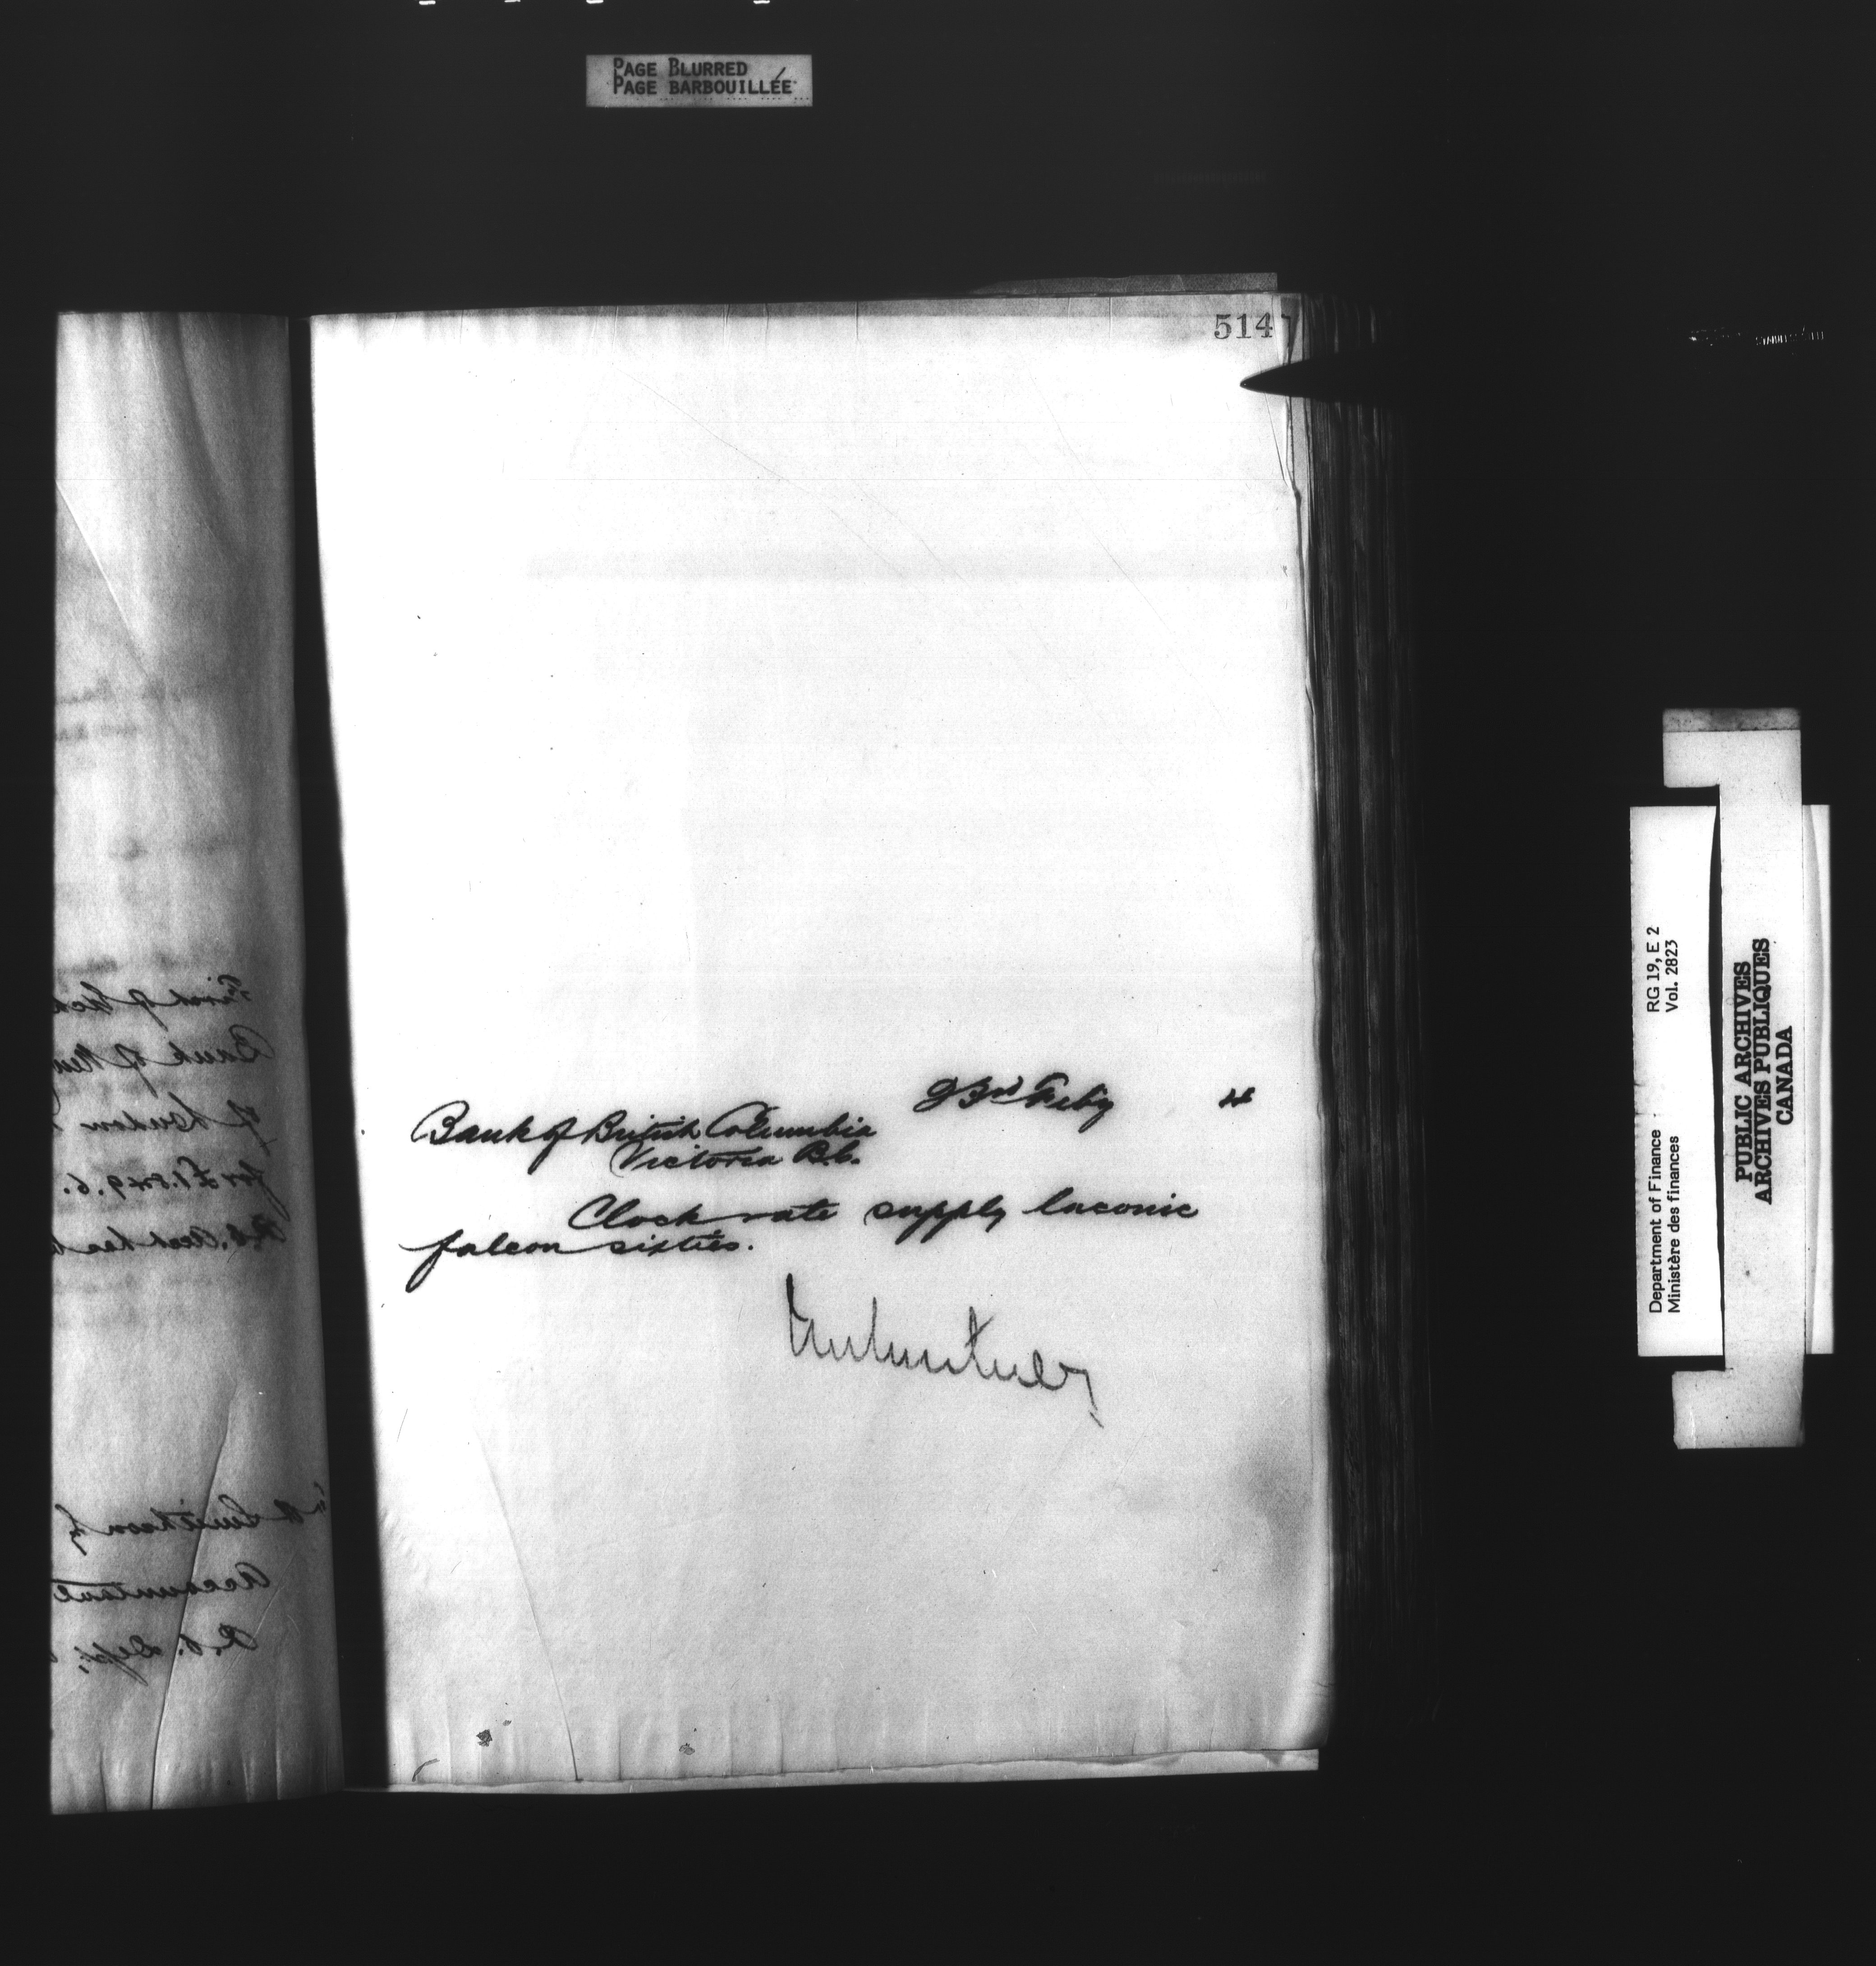 PAGE BLURRED
PAGE BARBOUILLÉE
514
23rd Feby 4
Bank of British Columbia
Victoria B.C.
Clock rate supply laconic
falcon sixties.
Bank of New
of London
for £1.549.6.
Smithson
Accountant
Department of Finance RG 19, E 2
Ministère des finances Vol. 2823
PUBLIC ARCHIVES
ARCHIVES PUBLIQUES
CANADA